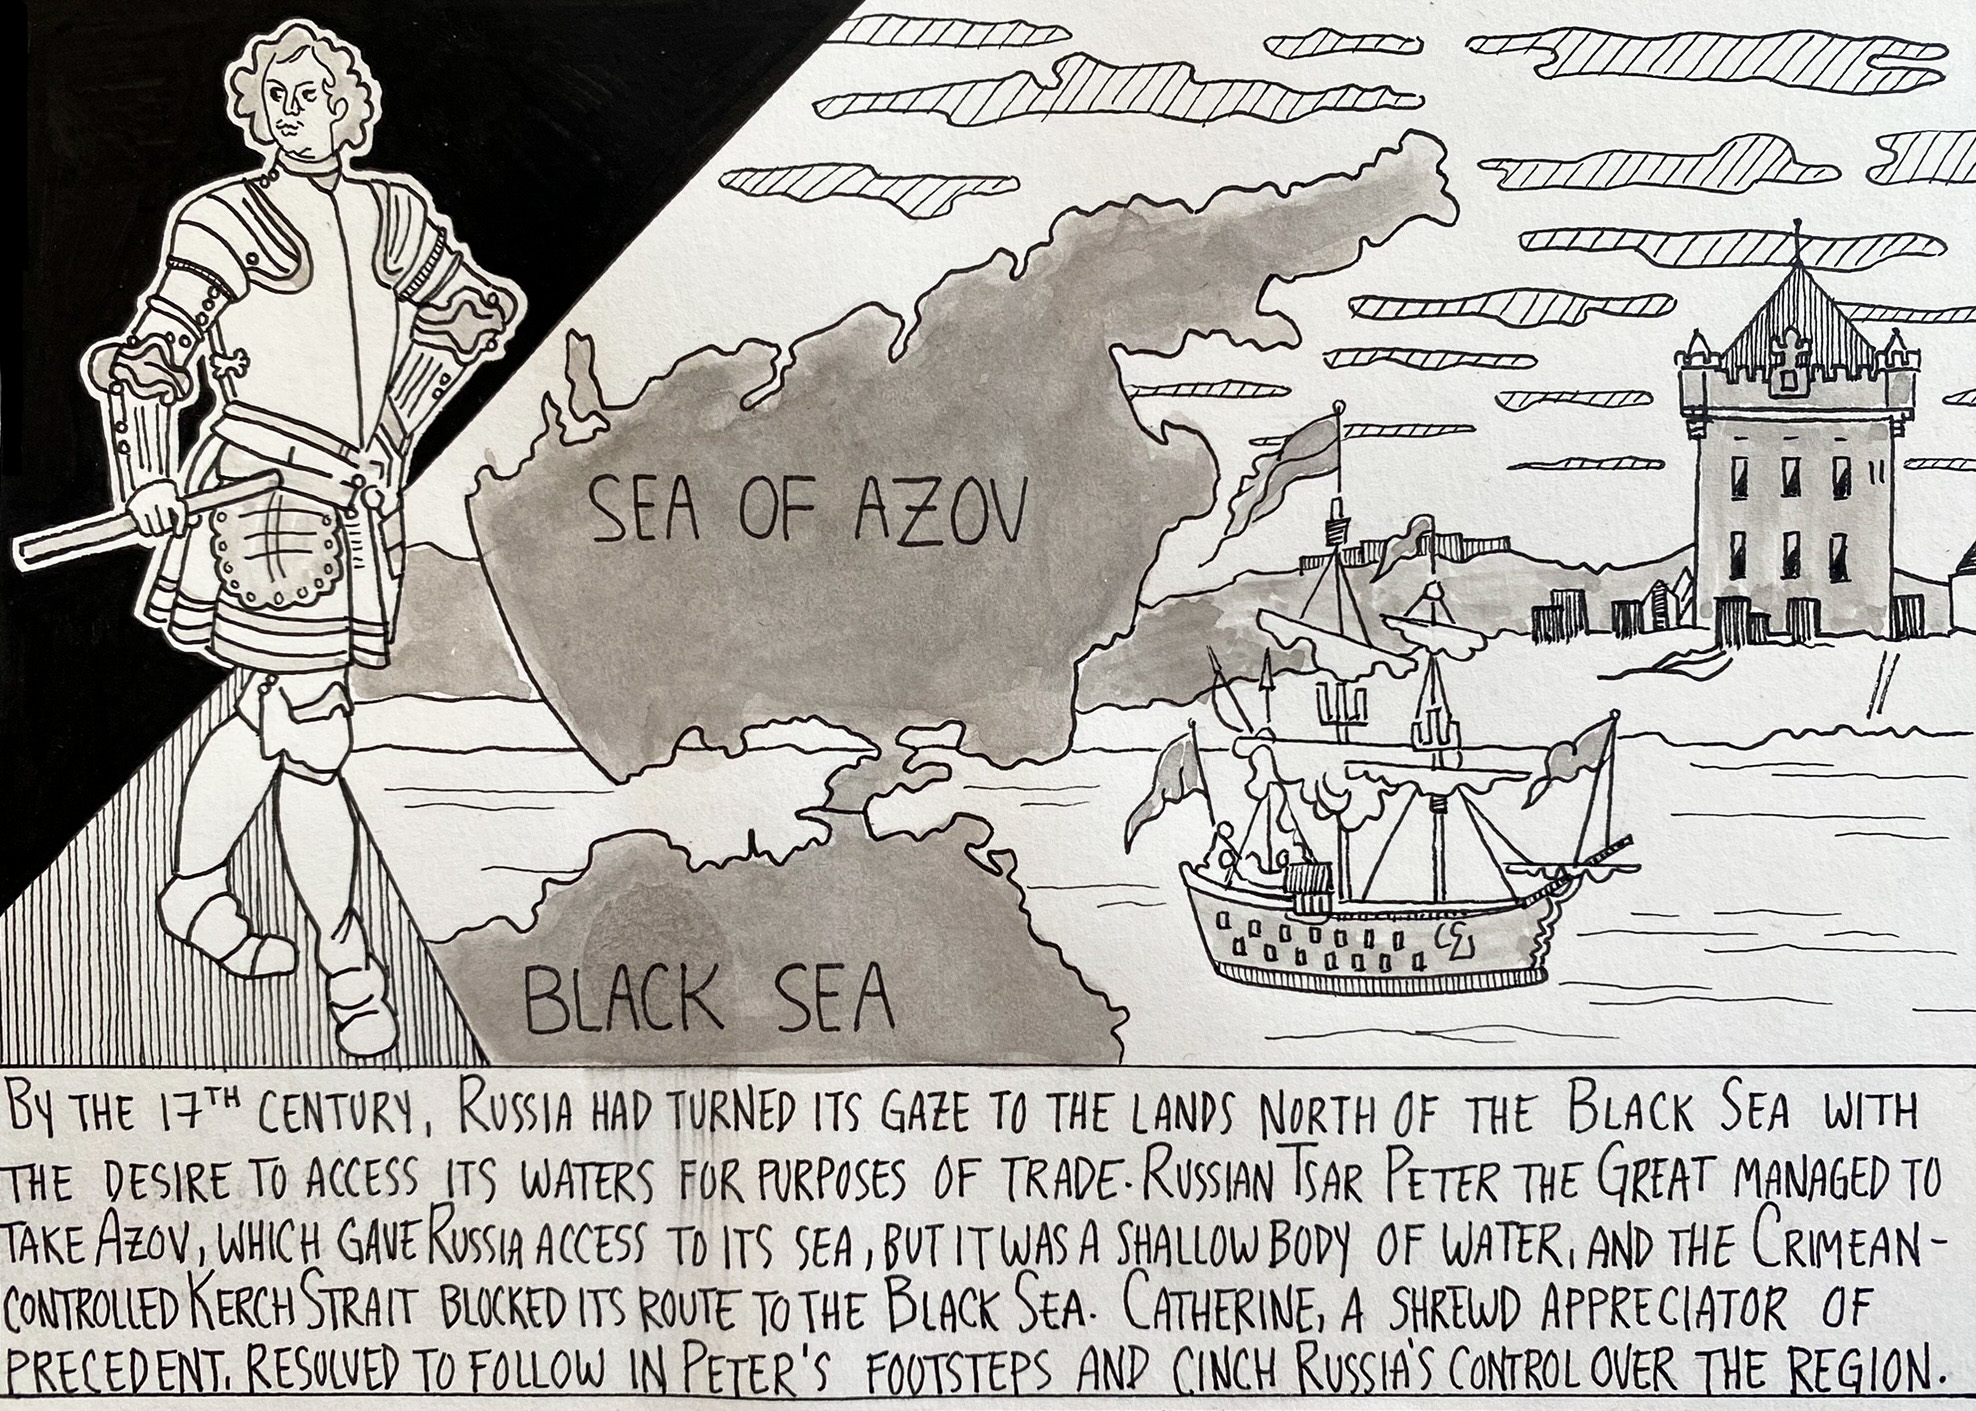 SEA OF AZOV
BLACK SEA
BY THE 17TH CENTURY, RUSSIA HAD TURNED ITS GAZE TO THE LANDS NORTH OF THE BLACK SEA WITH
THE DESIRE TO ACCESS ITS WATERS FOR PURPOSES OF TRADE. RUSSIAN TSAR PETER THE GREAT MANAGED TO
TAKE AZOV, WHICH GAVE RUSSIA ACCESS TO ITS SEA, BUT IT WAS A SHALLOW BODY OF WATER, AND THE CRIMEAN-
CONTROLLED KERCH STRAIT BLOCKED ITS ROUTE TO THE BLACK SEA. CATHERINE, A SHREWD APPRECIATOR OF
PRECEDENT, RESOLVED TO FOLLOW IN PETER'S FOOTSTEPS AND CINCH RUSSIA'S CONTROL OVER THE REGION.